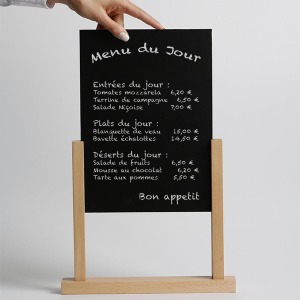 Menu du Jour
Entrées du jour :
Tomates mozzarela 6,20 €
Terrine de campagne 6,50 €
Salade Niçoise 7,00 €
Plats du jour :
Blanquette de veau 15,00 €
Bavette échalottes 14,50 €
Déserts du jour :
Salade de fruits 6,50 €
Mousse au chocolat 6,20 €
Tarte aux pommes 5,50 €
Bon appetit